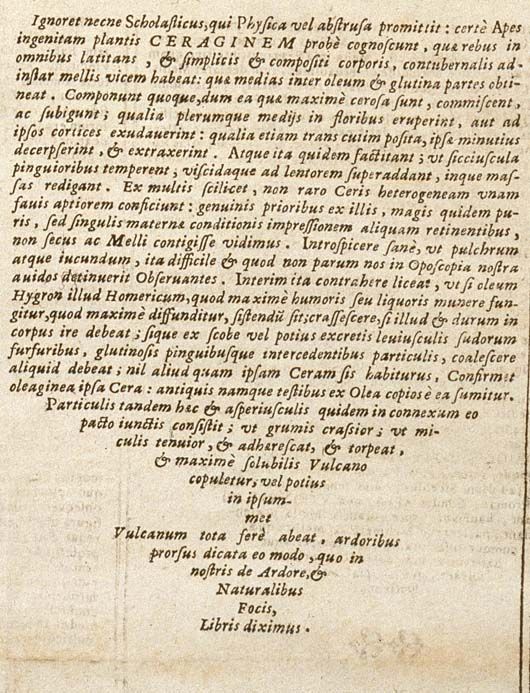 Ignoret necne Scholaſticus, qui Phyſica vel abſtruſa promittit: certè Apes
ingenitam plantis CERAGINEM probè cognoſcunt, quæ rebus in
omnibus latitans, & ſimplicis & compoſiti corporis, contubernalis ad-
inſtar mellis vicem habeat: quæ medias inter oleum & glutina partes obti-
neat. Componunt quoque, dum ea quæ maximè ceroſa ſunt, commiſcent,
ac ſubigunt; qualia plerumque medijs in floribus eruperint, aut ad
ipſos cortices exudauerint: qualia etiam trans cutim poſita, ipſæ minutius
decerpſerint, & extraxerint. Atque ita quidem factitant; vt ſicciuſcula
pinguioribus temperent; viſcidaque ad lentorem ſuperaddant, inque maſ-
ſas redigant. Ex multis ſcilicet, non raro Ceris heterogeneam vnam
faui aptiorem conficiunt: genuinis prioribus ex illis, magis quidem pu-
ris, ſed ſingulis maternæ conditionis impreſſionem aliquam retinentibus,
non ſecus ac Melli contigiſſe vidimus. Introſpicere ſanè, vt pulchrum
atque iucundum, ita difficile & quod non parum nos in Opoſcopia noſtra
auidos detinuerit Obſeruantes. Interim ita contrahere liceat, vt ſi oleum
Hygron illud Homericum, quod maximè humoris ſeu liquoris munere fun-
gitur, quod maximè diffunditur, ſiſtendū ſit; craſſeſcere, ſi illud & durum in
corpus ire debeat; ſique ex ſcobe vel potius excretis leuiuſculis ſudorum
furfuribus, glutinoſis pinguibuſque intercedentibus particulis, coaleſcere
aliquid debeat; nil aliud quam ipſam Ceram ſis habiturus. Confirmet
oleaginea ipſa Cera: antiquis namque teſtibus ex Olea copiosè ea ſumitur.
Particulis tandem hæc & aſperiuſculis quidem in connexum eo
pacto iunctis conſiſtit; vt grumis craſſior; vt mi-
culis tenuior, & adhæreſcat, & torpeat,
& maximè ſolubilis Vulcano
copuletur, vel potius
in ipſum-
met
Vulcanum tota ferè abeat, ardoribus
prorſus dicata eo modo, quo in
noſtris de Ardore, &
Naturalibus
Focis,
Libris diximus.